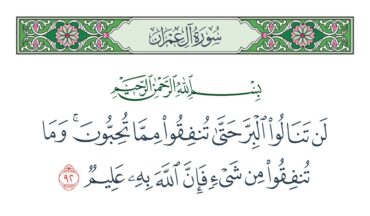 سُورَةُ آلِ عِمْرَانَ
بِسْمِ اللَّهِ الرَّحْمَٰنِ الرَّحِيمِ
لَن تَنَالُوا۟ ٱلْبِرَّ حَتَّىٰ تُنفِقُوا۟ مِمَّا تُحِبُّونَ ۚ وَمَا
تُنفِقُوا۟ مِن شَىْءٍ فَإِنَّ ٱللَّهَ بِهِۦ عَلِيمٌ ٩٢